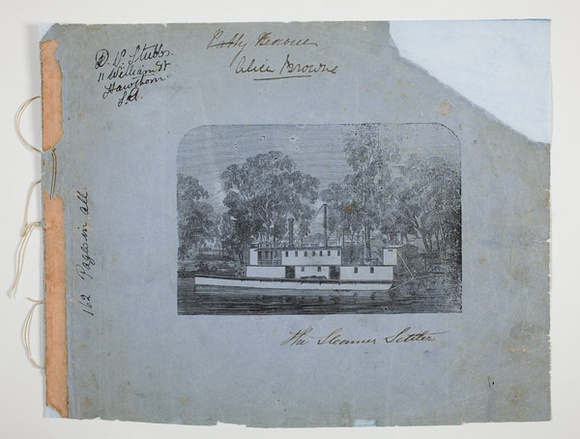 D. V. Stubbs.
11 William St
Hawthorn
S.A.
Alice Browne
162 Pages in all
The Steamer Settler